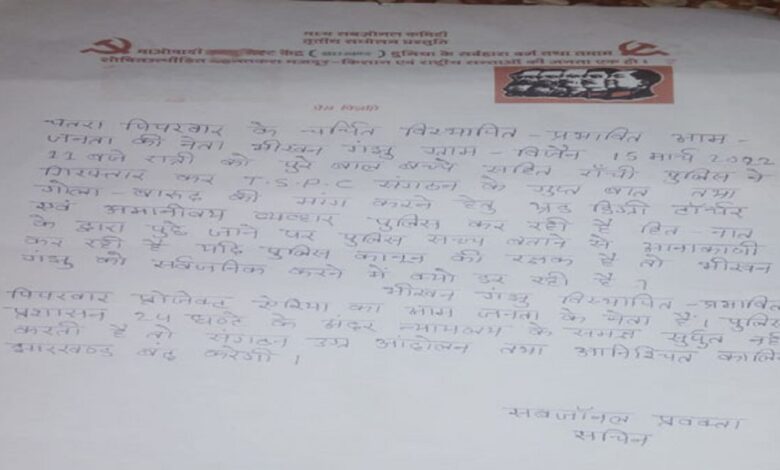 मध्य सबजोनल कमिटी
तृतीय सम्मेलन प्रस्तुति
दुनिया के सर्वहारा वर्ग तथा तमाम
मजदूर-किसान एवं राष्ट्रीय सत्ताओं की जनता एक हो।
प्रेस विज्ञप्ति
चतरा पिपरवार के चर्चित विस्थापित-प्रभावित आम-
जनता की नेता भीखन गंझू ग्राम-विजैन 15 मार्च 2022
11 बजे रात्री को पुरे बाल बच्चे सहित राँची पुलिस ने
गिरफ्तार कर T.S.P.C संगठन के गुप्त बात तथा
गोला-बारूद की मांग करने हेतु थ्रड डिग्री टॉर्चर
एवं अमानीवय व्यवहार पुलिस कर रही है हित-नात
के द्वारा पुछे जाने पर पुलिस सच्च बताने से आनाकाणी
कर रही है यदि पुलिस कानुन की रक्षक है तो भीखन
गंझु को सर्वजनिक करने में क्यों डर रही है।
भीखन गंझु विस्थापित-प्रभावित
पिपरवार प्रोजेक्ट ऐरिया का आम जनता के नेता है। पुलिस
प्रशासन 24 घण्टे के अंदर न्यायलय के समक्ष सुर्पुत नहीं
करती है तो संगठन उग्र आंदोलन तथा आनिश्चित कालिन
झारखण्ड बंद करेगी।
सबजॉनल प्रवक्ता
सचिन